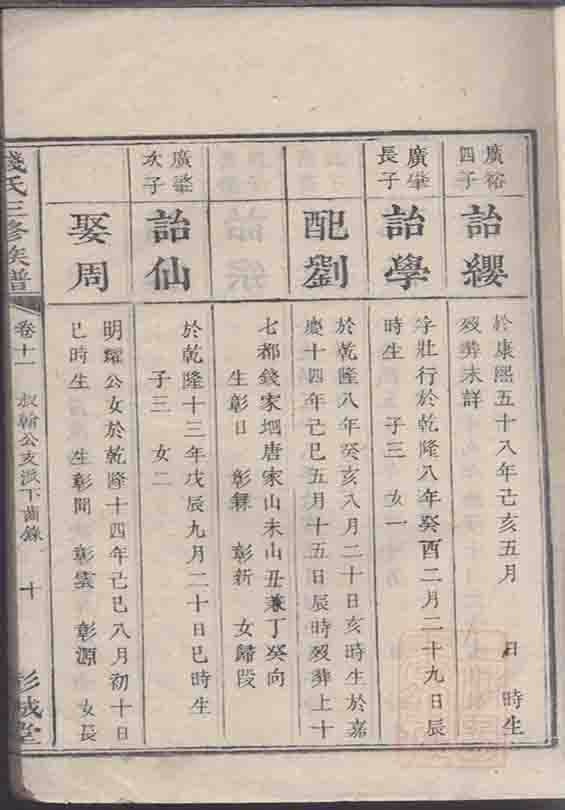 廣裕
四子
詒纓
於康熙五十八年己亥五月 日 時生
歿葬未詳
廣肇
長子
詒學
字壯行於乾隆八年癸酉二月二十九日辰
時生 子三 女一
配劉
於乾隆八年癸亥八月二十日亥時生於嘉
慶十四年己巳五月十五日辰時歿葬上十
七都錢家垇唐家山未山丑兼丁癸向
生彰日 彰 彰新 女歸段
廣肇
次子
詒仙
於乾隆十三年戊辰九月二十日巳時生
子三 女二
娶周
明耀公女於乾隆十四年己巳八月初十日
巳時生 生彰聞 彰雲 彰源 女長
錢氏三修族譜
卷十一
叔翰公支派下齒錄
十
彭城堂